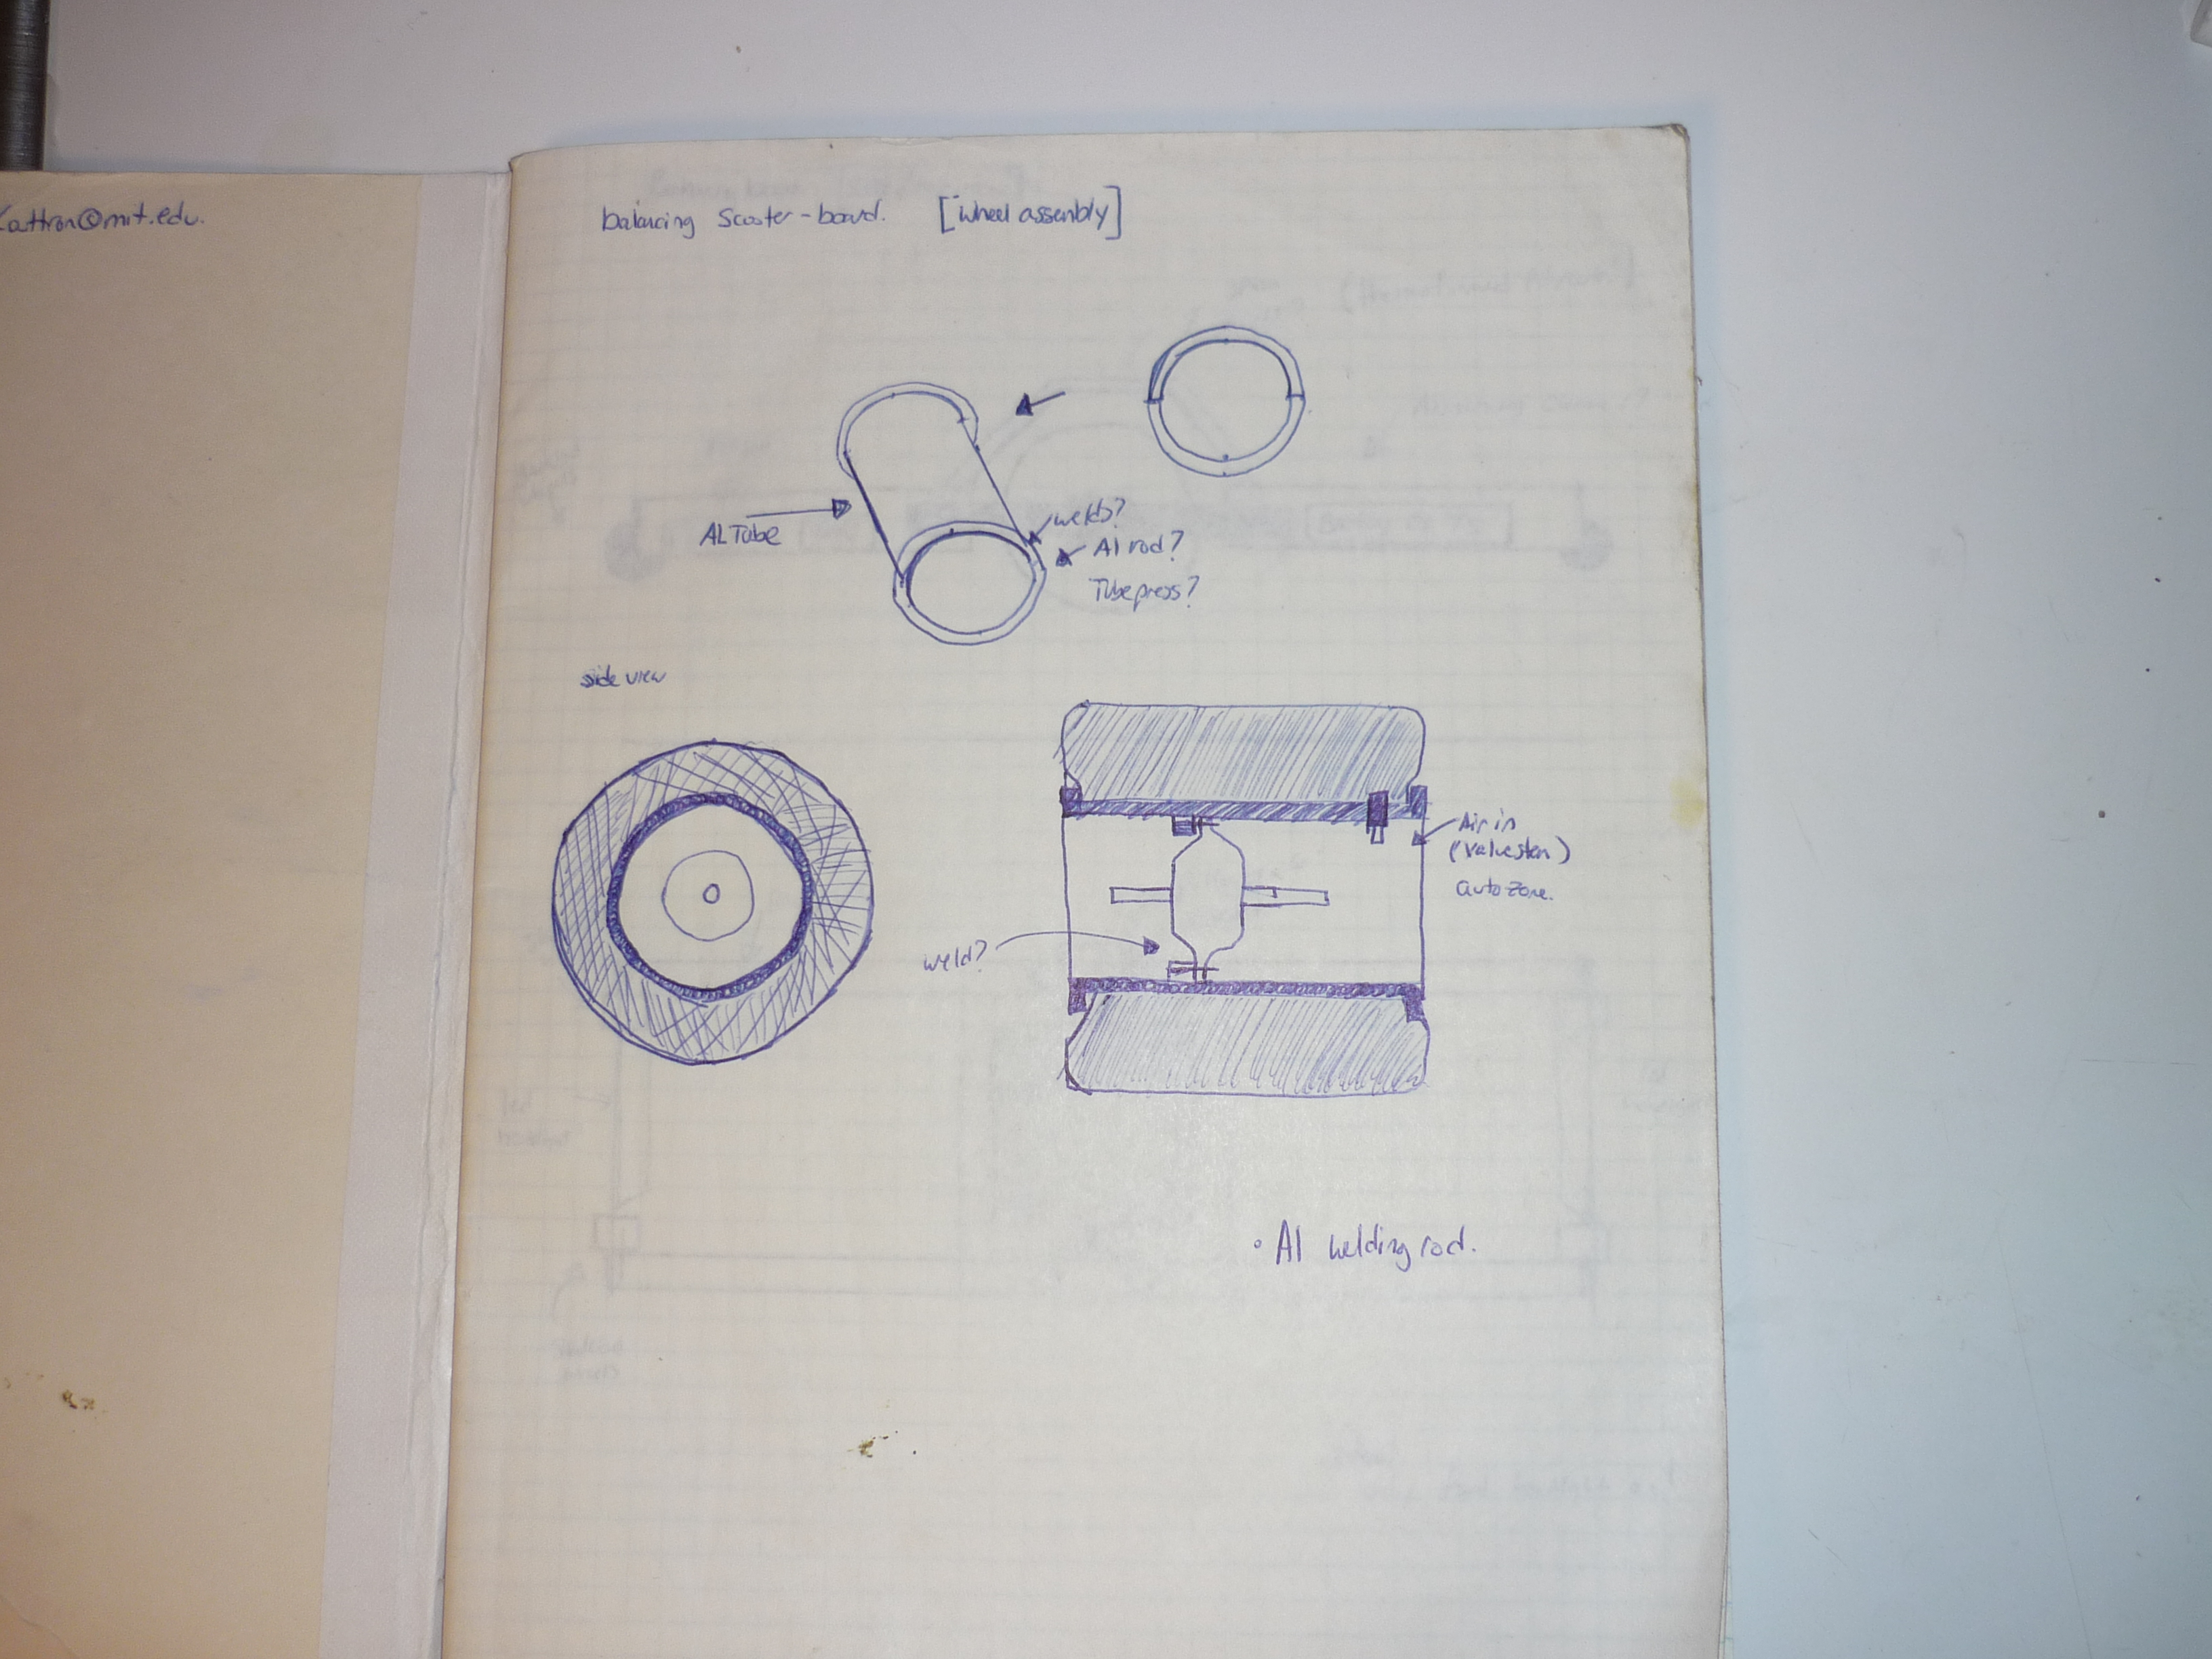 balancing scooter-board. [wheel assembly]
AL Tube
weld?
Al rod?
Tube press?
side view
Air in
(valve stem)
autozone.
weld?
• Al welding rod.